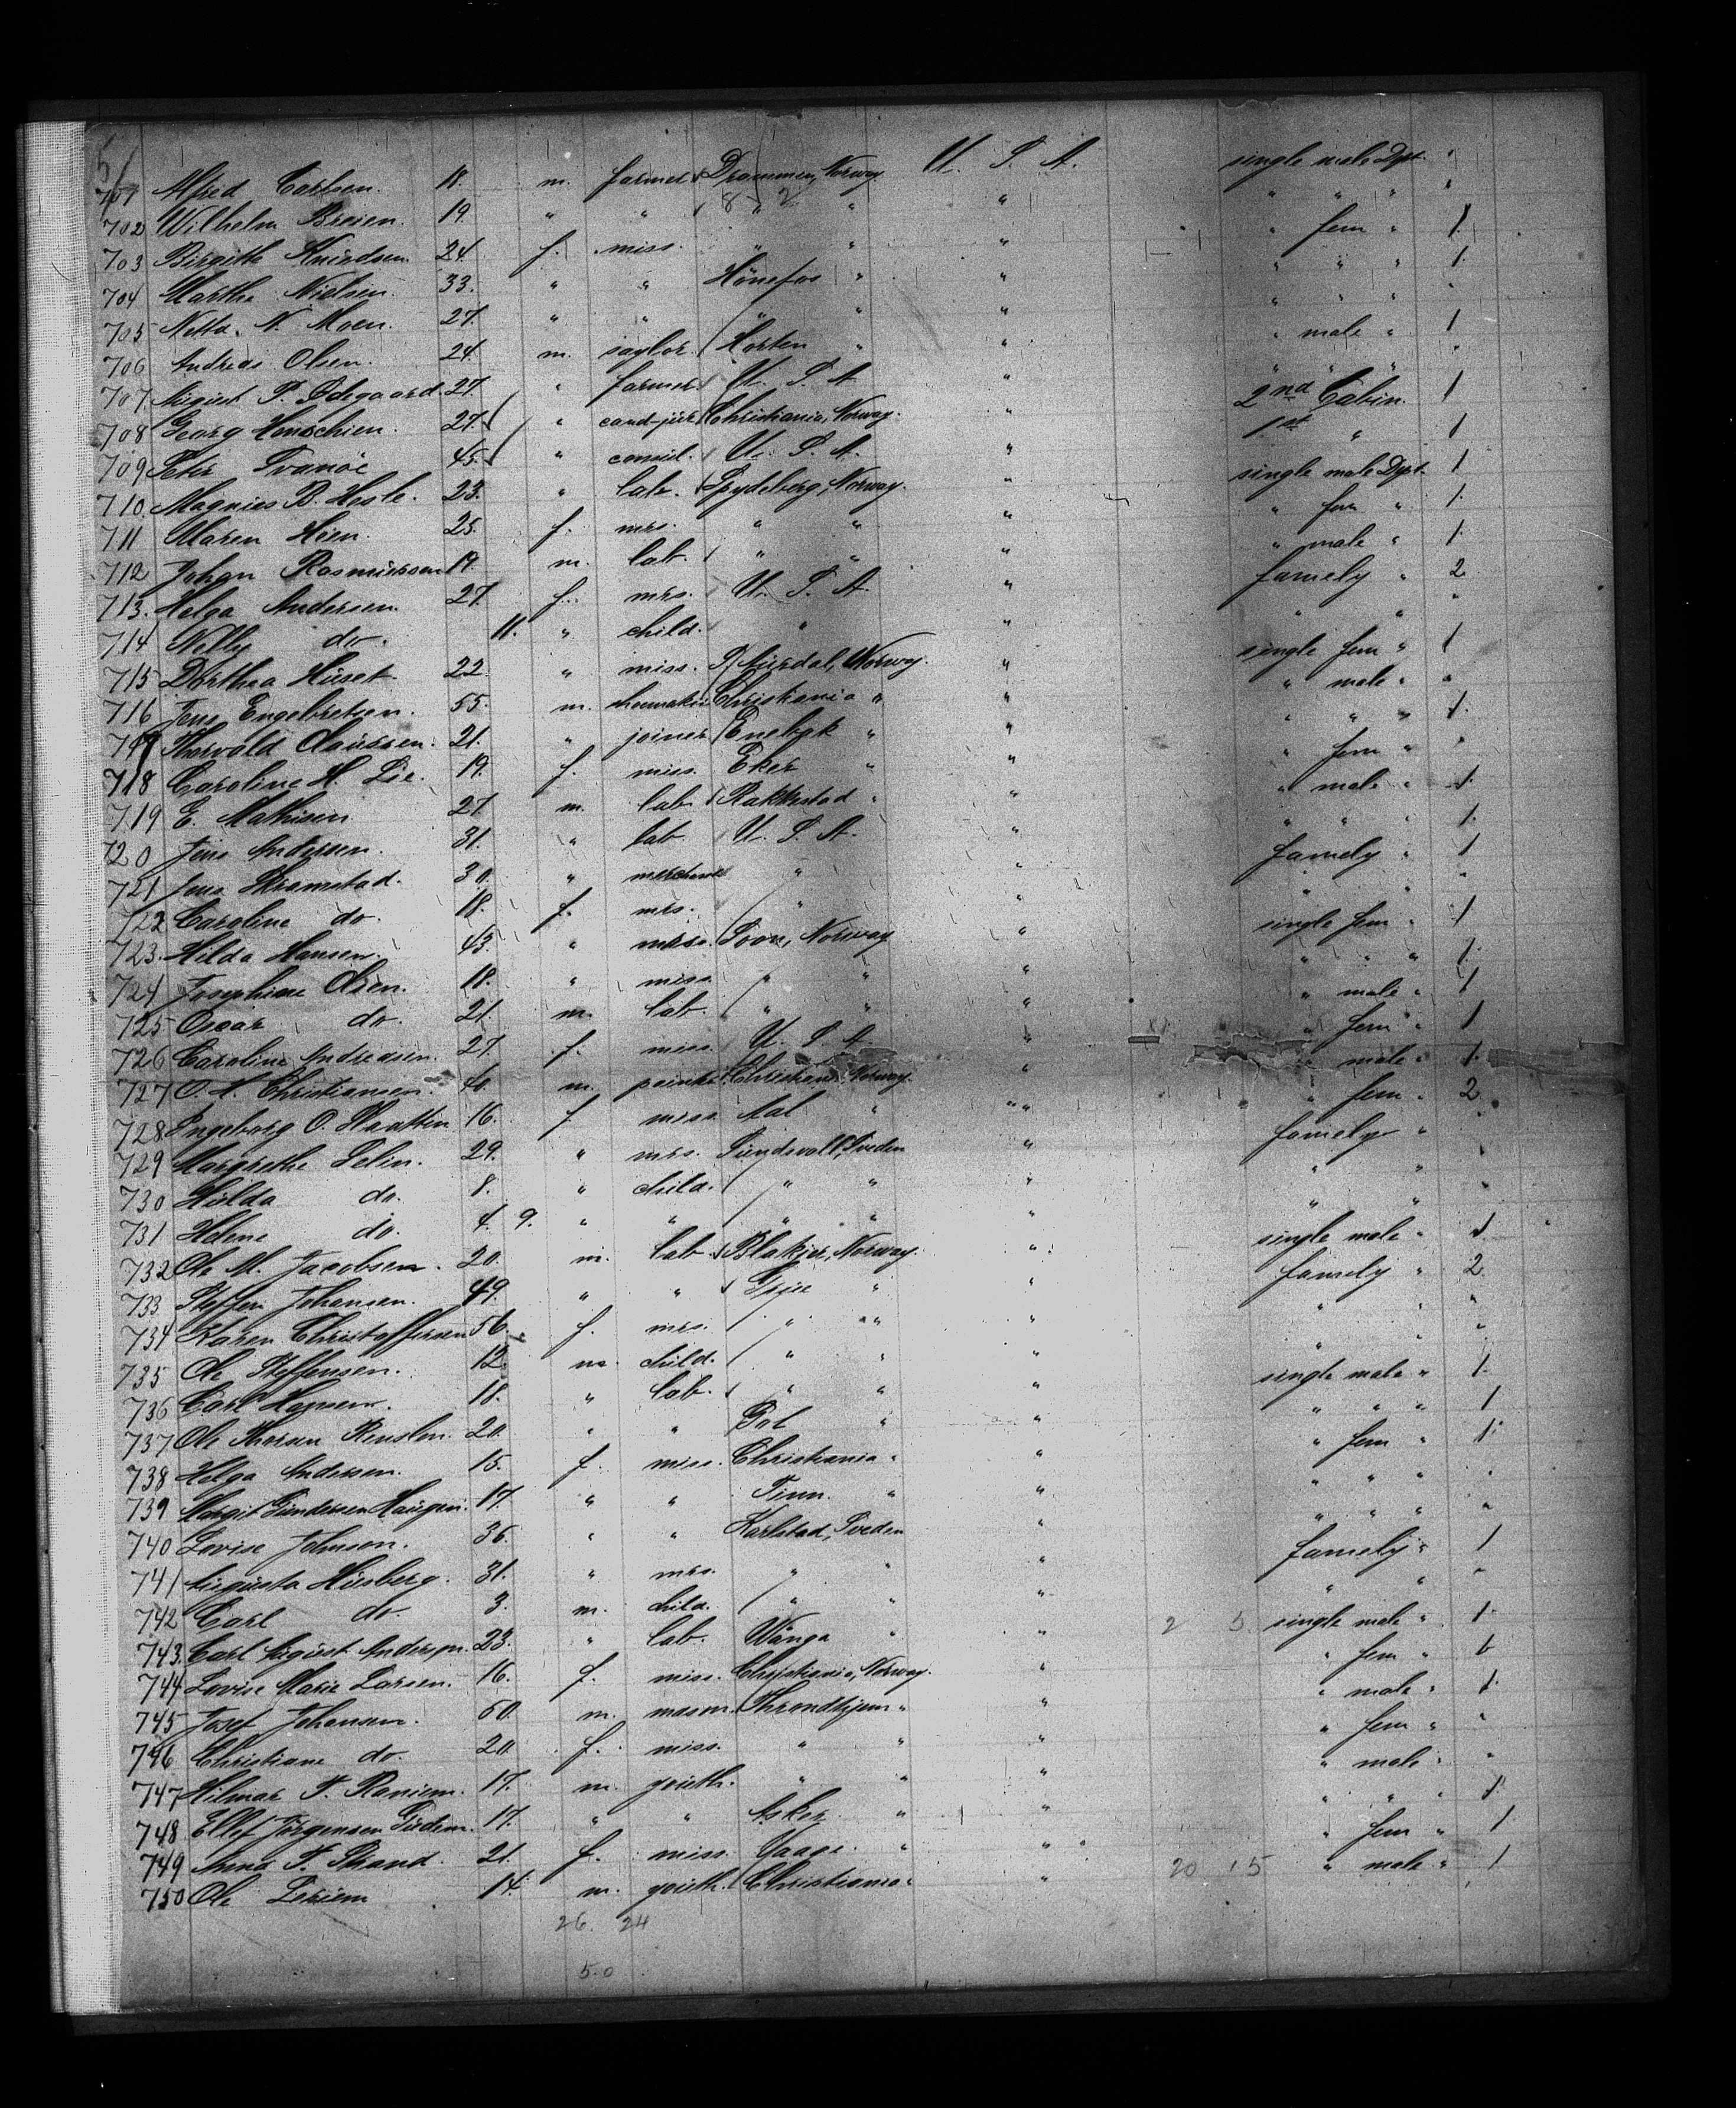 5/
701 Alfred Carlsen. 18. m. farmer Drammen, Norway U. S. A. single male Dpt. "
702 Wilhelm Breien. 19. " " " " " " " " "
8 - 2
703 Birgithe Knudsen. 24. f. miss. " " " " fem " 1.
704 Marthe Nielsen. 33. " " Hönefos " " " " " 1.
705 Netta. N. Moen. 27. " " " " " " " " "
706 Andreas Olsen. 24. m. saylor. Horten " " " male " 1
707. August P. Ödegaard. 27. " farmer. U. S. A. " " " "
708 Georg Henschien. 27. " cand-jur Christiania, Norway. " 2nd Cabin. 1
709 Peter Svanöe 45. " consul. U. S. A. " 1st " 1
710. Magnus B. Hesle. 23. " lab. Spydeberg, Norway. " single male Dpt. 1
711 Maren Hien. 25. f. mrs. " " " " fem " 1.
712 Johan Rasmussen 19. m. lab. " " " " male " 1.
713. Helga Andersen. 27. f. mrs. U. S. A. " famely " 2
714 Nelly do. 11. " child. " " " " "
715 Dorthea Huset. 22. " miss. Aurdal, Norway. " single fem " 1
716 Jens Engebretsen. 55. m. shoemaker Christiania " " " male " "
717 Thorvald Claussen. 21. " joiner Enebak " " " " " 1.
718 Caroline H. Lie. 19. f. miss. Eker " " " fem " "
719 E. Mathisen 27. m. lab. Rakkestad " " " male " 1.
720 Jens Andersen. 31. " lab. U. S. A. " " " " 1.
721 Jens Stromstad. 30. " merchant " " famely " 1
722 Caroline do. 18. f. mrs. " " " " "
723. Hilda Hansen. 43. " miss. Soon, Norway " single fem " 1
724 Josephine Olsen. 18. " miss. " " " " " " 1.
725 Oscar do. 21. m. lab. " " " " male " 1
726 Caroline Andreasen. 27. f. miss. U. S. A. " " fem " 1
727 O. A. Christiansen. 40. m. painter Christiania Norway. " " male " 1.
728 Ingeborg O. Skatten 16. f. miss Aal " " " fem " 2
729 Margrethe Selin. 29. " mrs. Sundsvall, Sveden " famely " "
730 Hulda do. 8. " child. " " " " " "
731 Helene do. 4. 9. " " " " " " " "
732 Ole M. Jacobsen. 20. m. lab. Blakjer, Norway. " single male " 1
733 Steffen Johansen. 49. " " " " famely " 2
734 Karen Christoffersen 56. f. mrs. " " " " " "
735 Ole Steffensen. 12. m. child. " " " " " "
736 Carl Hansen. 18. " lab. " " " single male " 1.
737 Ole Thorsen Renslen. 20. " " Gol " " " " " 1
738 Helga Andersen. 15. f. miss. Christiania " " " fem " 1.
739 Margit Gundersen Haugen. 17. " " Tinn. " " " " " "
740 Lovise Johnson. 36. " " Karlstad, Sveden " " " " "
741 Augusta Husberg. 31. " mrs. " " " famely " 1
742 Carl do. 3. m. child. " " " " " "
743. Carl August Anderson. 23. " lab. Wånga " " 2 5 single male " 1.
744 Lovise Marie Larsen. 16. f. miss. Christiania, Norway. " " fem " 1
745 Josef Johansen. 60. m. mason. Throndhjem " " " male " 1.
746 Christiane do. 20. f. miss. " " " " fem " "
747 Hilmar F. Raniem. 17. m. youth. " " " " male " "
748 Ellef Jörgensen Gudem. 17. " " Asker " " " " " 1.
749 Anna F. Strand. 21. f. miss. Vaage " " " fem " 1
750 Ole 14. m. youth. Christiania " " 20 15 " male " 1
26. 24
50